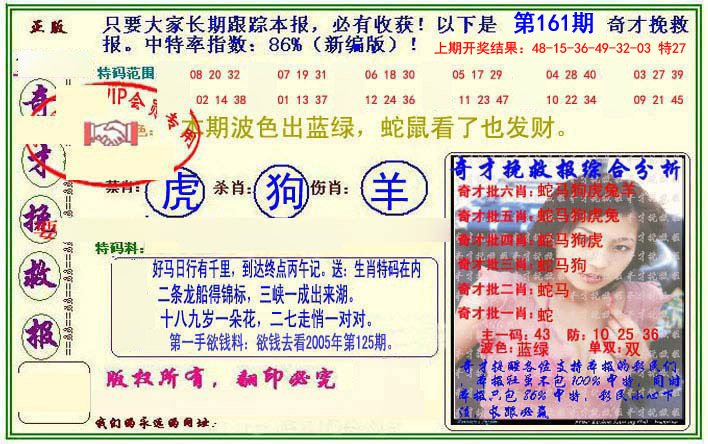 正版
只要大家长期跟踪本报，必有收获！以下是 第161期 奇才挽救
报。中特率指数：86%（新编版）！ 上期开奖结果：48-15-36-49-32-03 特27
特码范围 08 20 32 07 19 31 06 18 30 05 17 29 04 28 40 03 27 39
02 14 38 01 13 37 12 24 36 11 23 47 10 22 34 09 21 45
VIP会员专用
色：本期波色出蓝绿，蛇鼠看了也发财。
奇才挽救报
禁肖：虎 杀肖：狗 伤肖：羊
特码料：
好马日行有千里，到达终点丙午记。送：生肖特码在内
二条龙船得锦标，三峡一成出来湖。
十八九岁一朵花，二七走悄一对对。
第一手欲钱料：欲钱去看2005年第125期。
版权所有，翻印必究
我们的永远的网址：
奇才挽救报综合分析
奇才批六肖：蛇马狗虎兔羊
奇才批五肖：蛇马狗虎兔
奇才批四肖：蛇马狗虎
奇才批三肖：蛇马狗
奇才批二肖：蛇马
奇才批一肖：蛇
主一码：43 防：10 25 36
波色：蓝绿 单双：双
奇才提醒各位支持本报的彩民们
，本报社虽不包100%中特，但时
本报只包 86%中特，彩民小心下
注，长跟必赢